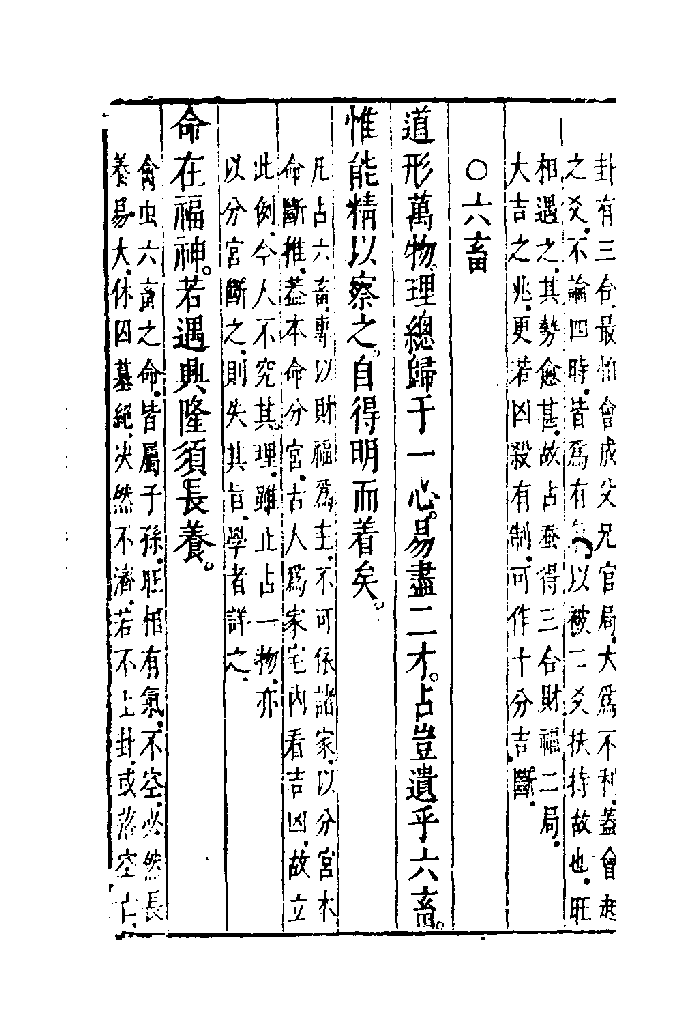 卦有三合最怕會成父兄官局大爲不利蓋會起
之爻不論四時皆爲有氣以被二爻扶持故也旺
相遇之其勢愈甚故占蚕得三合財福二局
大吉之兆更若凶殺有制可作十分吉斷
○六畜
道形萬物理總歸于一心易盡二才占豈遺乎六畜
惟能精以察之自得明而着矣
凡占六畜專以財福爲主不可依諸家以分宮本
命斷推蓋本命分宮古人爲家宅內看吉凶故立
此例今人不究其理雖止占一物亦
以分宮斷之則失其旨學者詳之
命在福神若遇興隆須長養
禽虫六畜之命皆屬子孫旺相有氣不空必然長
養易大休囚墓絕決然不濟若不上卦或落空亡